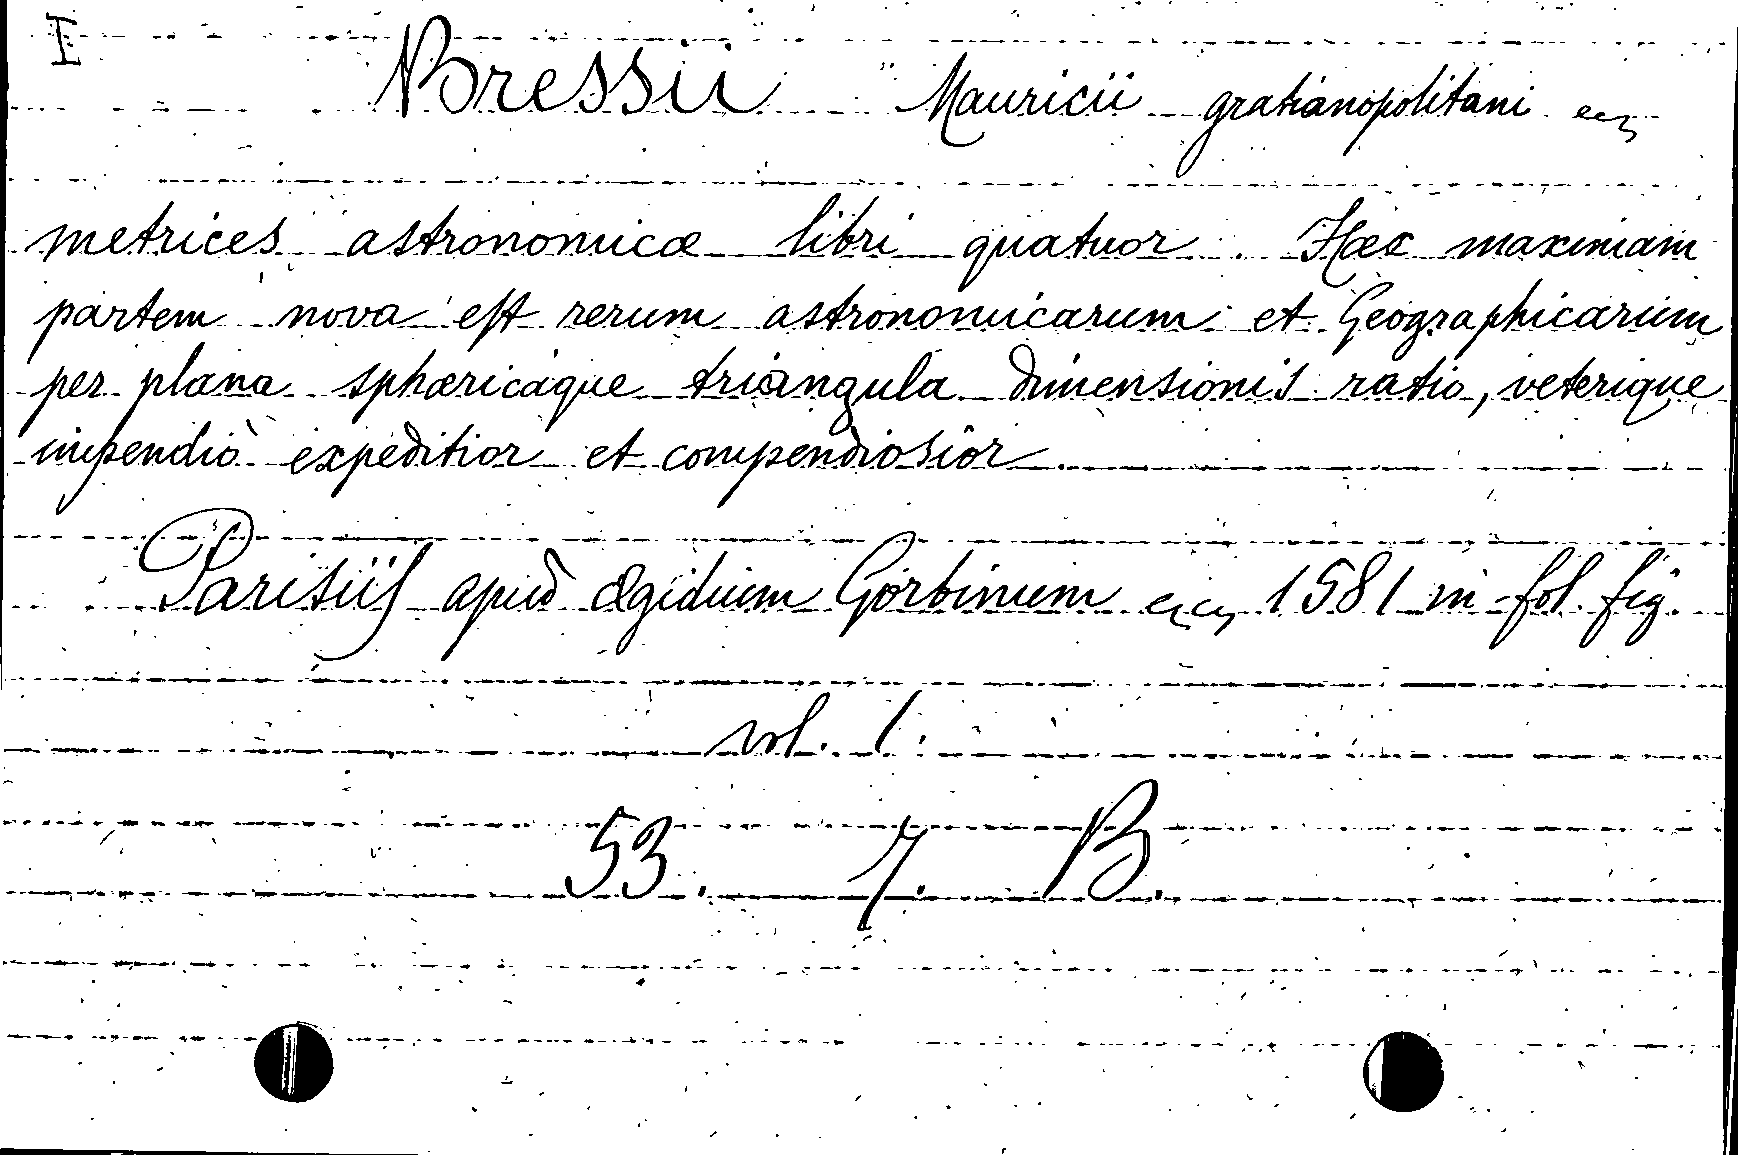 I
Bressii Mauricii gratianopolitani
metrices astronomicæ libri quatuor. Hæc maximam
partem nova est rerum astronomicarum et Geographicarum
per plana sphæricaque triangula dimensionis ratio, veterique
impendiò expeditior et compendiosior
Parisiis apud Ægidium Gorbinum 1581 in-fol. fig.
vol. 1.
53. 7. B.